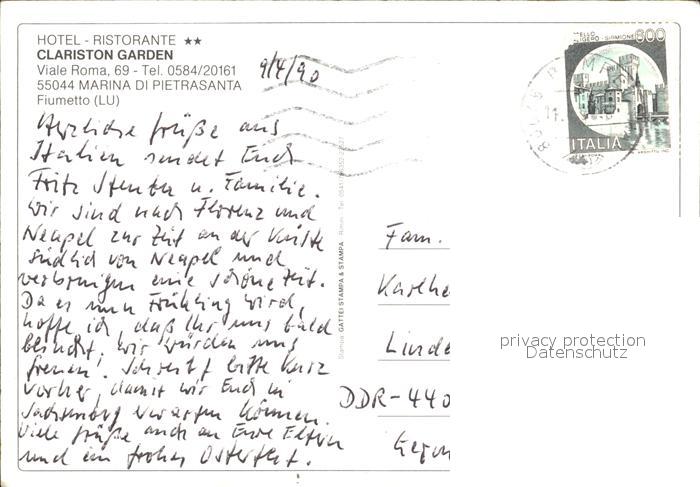 HOTEL - RISTORANTE ★★
CLARISTON GARDEN
Viale Roma, 69 - Tel. 0584/20161
55044 MARINA DI PIETRASANTA
Fiumetto (LU)
9/4/90
600
SIRMIONE
ITALIA
Herzliche Grüße aus
Italien sendet Euch
Fritz u. Familie.
Wir sind nach Florenz und
Neapel zur Zeit an der Küste
südlich von Neapel und
verbringen eine schöne Zeit.
Da es nun Frühling wird,
hoffe ich, daß Ihr uns bald
besucht, wir würden uns
freuen! Schreibt bitte kurz
vorher, damit wir Euch in
erwarten können.
Viele Grüße auch an Eure Eltern
und ein frohes Osterfest.
Stampa GATTEI STAMPA & STAMPA - Rimini - Tel.
Fam.
Karlhe
Linde
DDR-440
privacy protection
Datenschutz